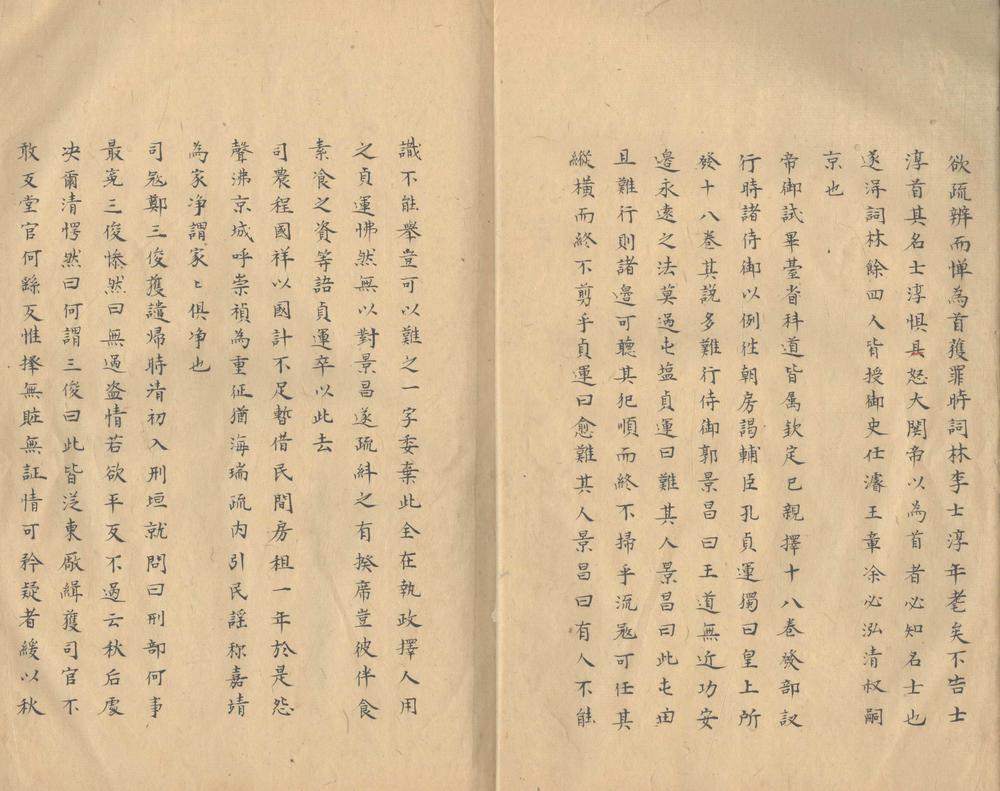 欲疏辨而憚為首獲罪時詞林李士淳年耄矣不告士
淳首其名士淳惧且怒大閧帝以為首者必知名士也
遂淂詞林餘四人皆授御史任濬王章凃必泓清叔嗣
京也
帝御試畢臺省科道皆属欽定已親擇十八卷發部議
行時諸侍御以例徃朝房謁輔臣孔貞運獨曰皇上所
發十八卷其説多難行侍御郭景昌曰王道無近功安
邊永逺之法莫過屯塩貞運曰難其人景昌曰此屯由
且難行則諸邊可聽其犯順而終不掃乎流冦可任其
縱橫而終不剪乎貞運曰愈難其人景昌曰有人不能
識不能舉豈可以難之一字委棄此全在執政擇人用
之貞運怫然無以對景昌遂疏紏之有揆席豈彼伴食
素飡之資等語貞運卒以此去
司農程國祥以國計不足暫借民間房租一年於是怨
聲沸京城呼崇禎為重征猶海瑞疏内引民謡称嘉靖
為家净謂家〻俱净也
司冦鄭三俊獲譴㷌時清初入刑垣就問曰刑部何事
最寃三俊惨然曰無過盗情若欲平反不過云秋后處
决爾清愕然曰何謂三俊曰此皆泛東厰緝獲司官不
敢反堂官何繇反惟擇無賍無証情可矜疑者緩以秋